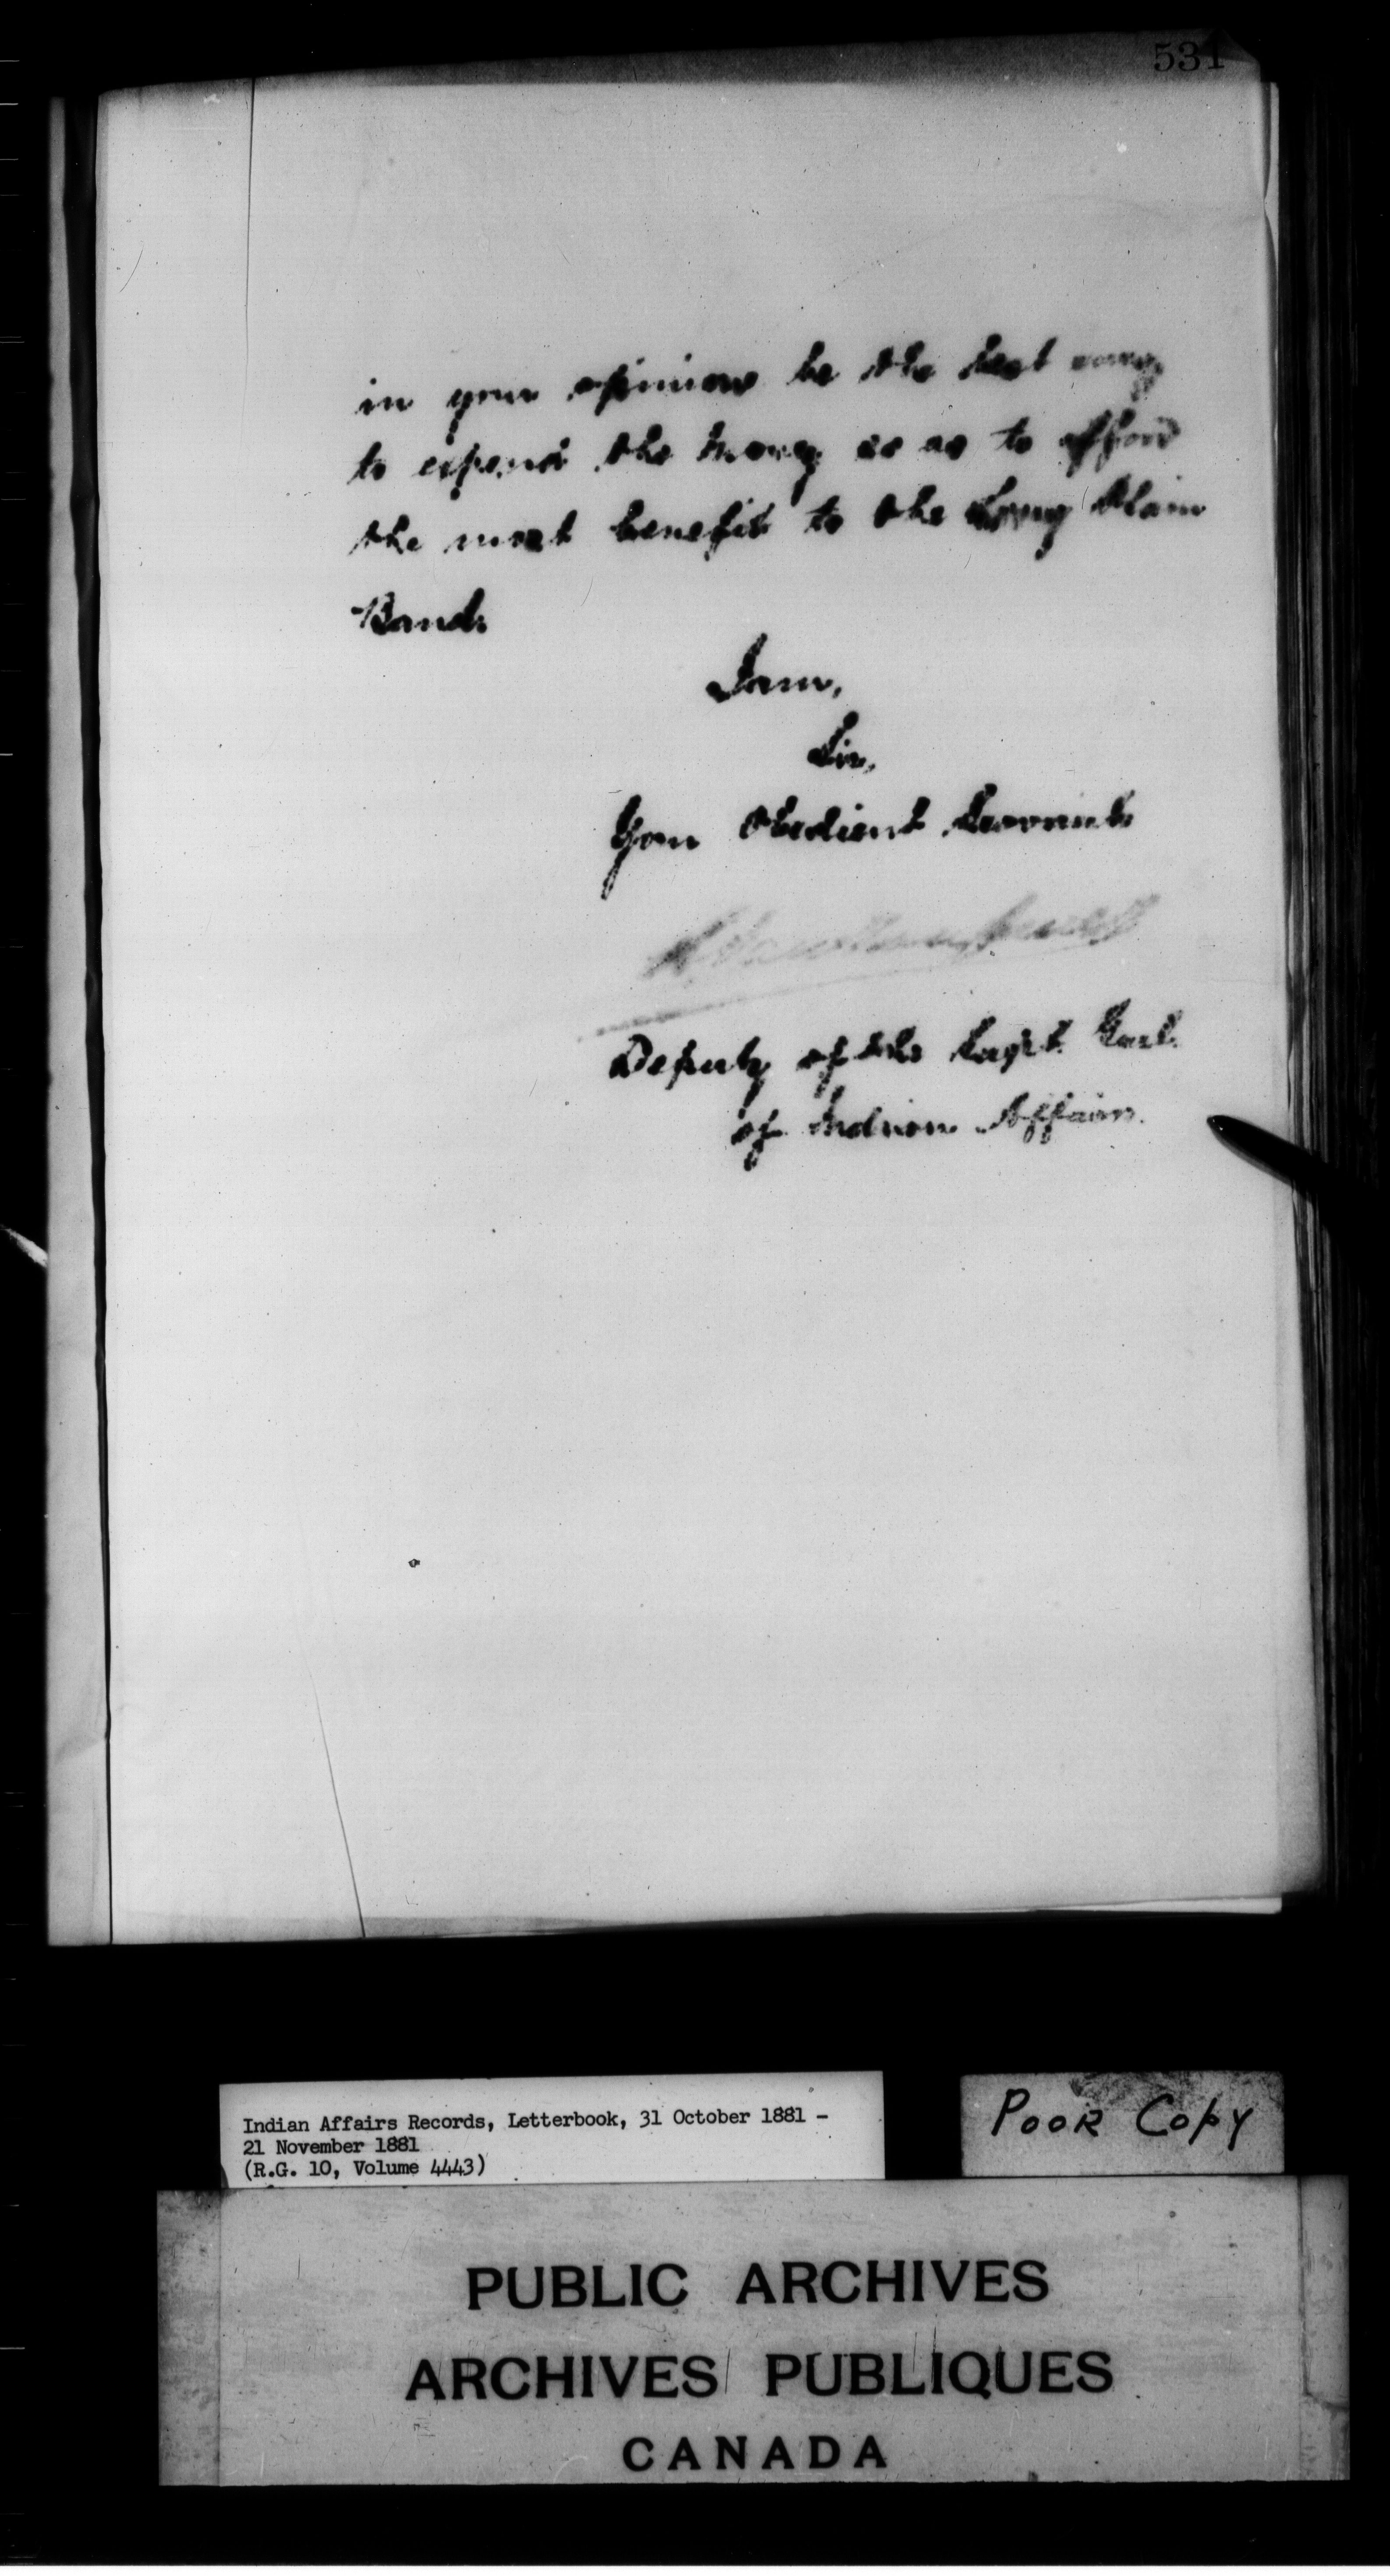 531
in your opinion be the best way
to expend the money so as to afford
the most benefit to the Long Plain
Band.
I am,
Sir,
Your Obedient Servant
L. Vankoughnet
Deputy of the Supt. Genl.
of Indian Affairs.
Indian Affairs Records, Letterbook, 31 October 1881 –
21 November 1881
(R.G. 10, Volume 4443)
POOR COPY
PUBLIC ARCHIVES
ARCHIVES PUBLIQUES
CANADA